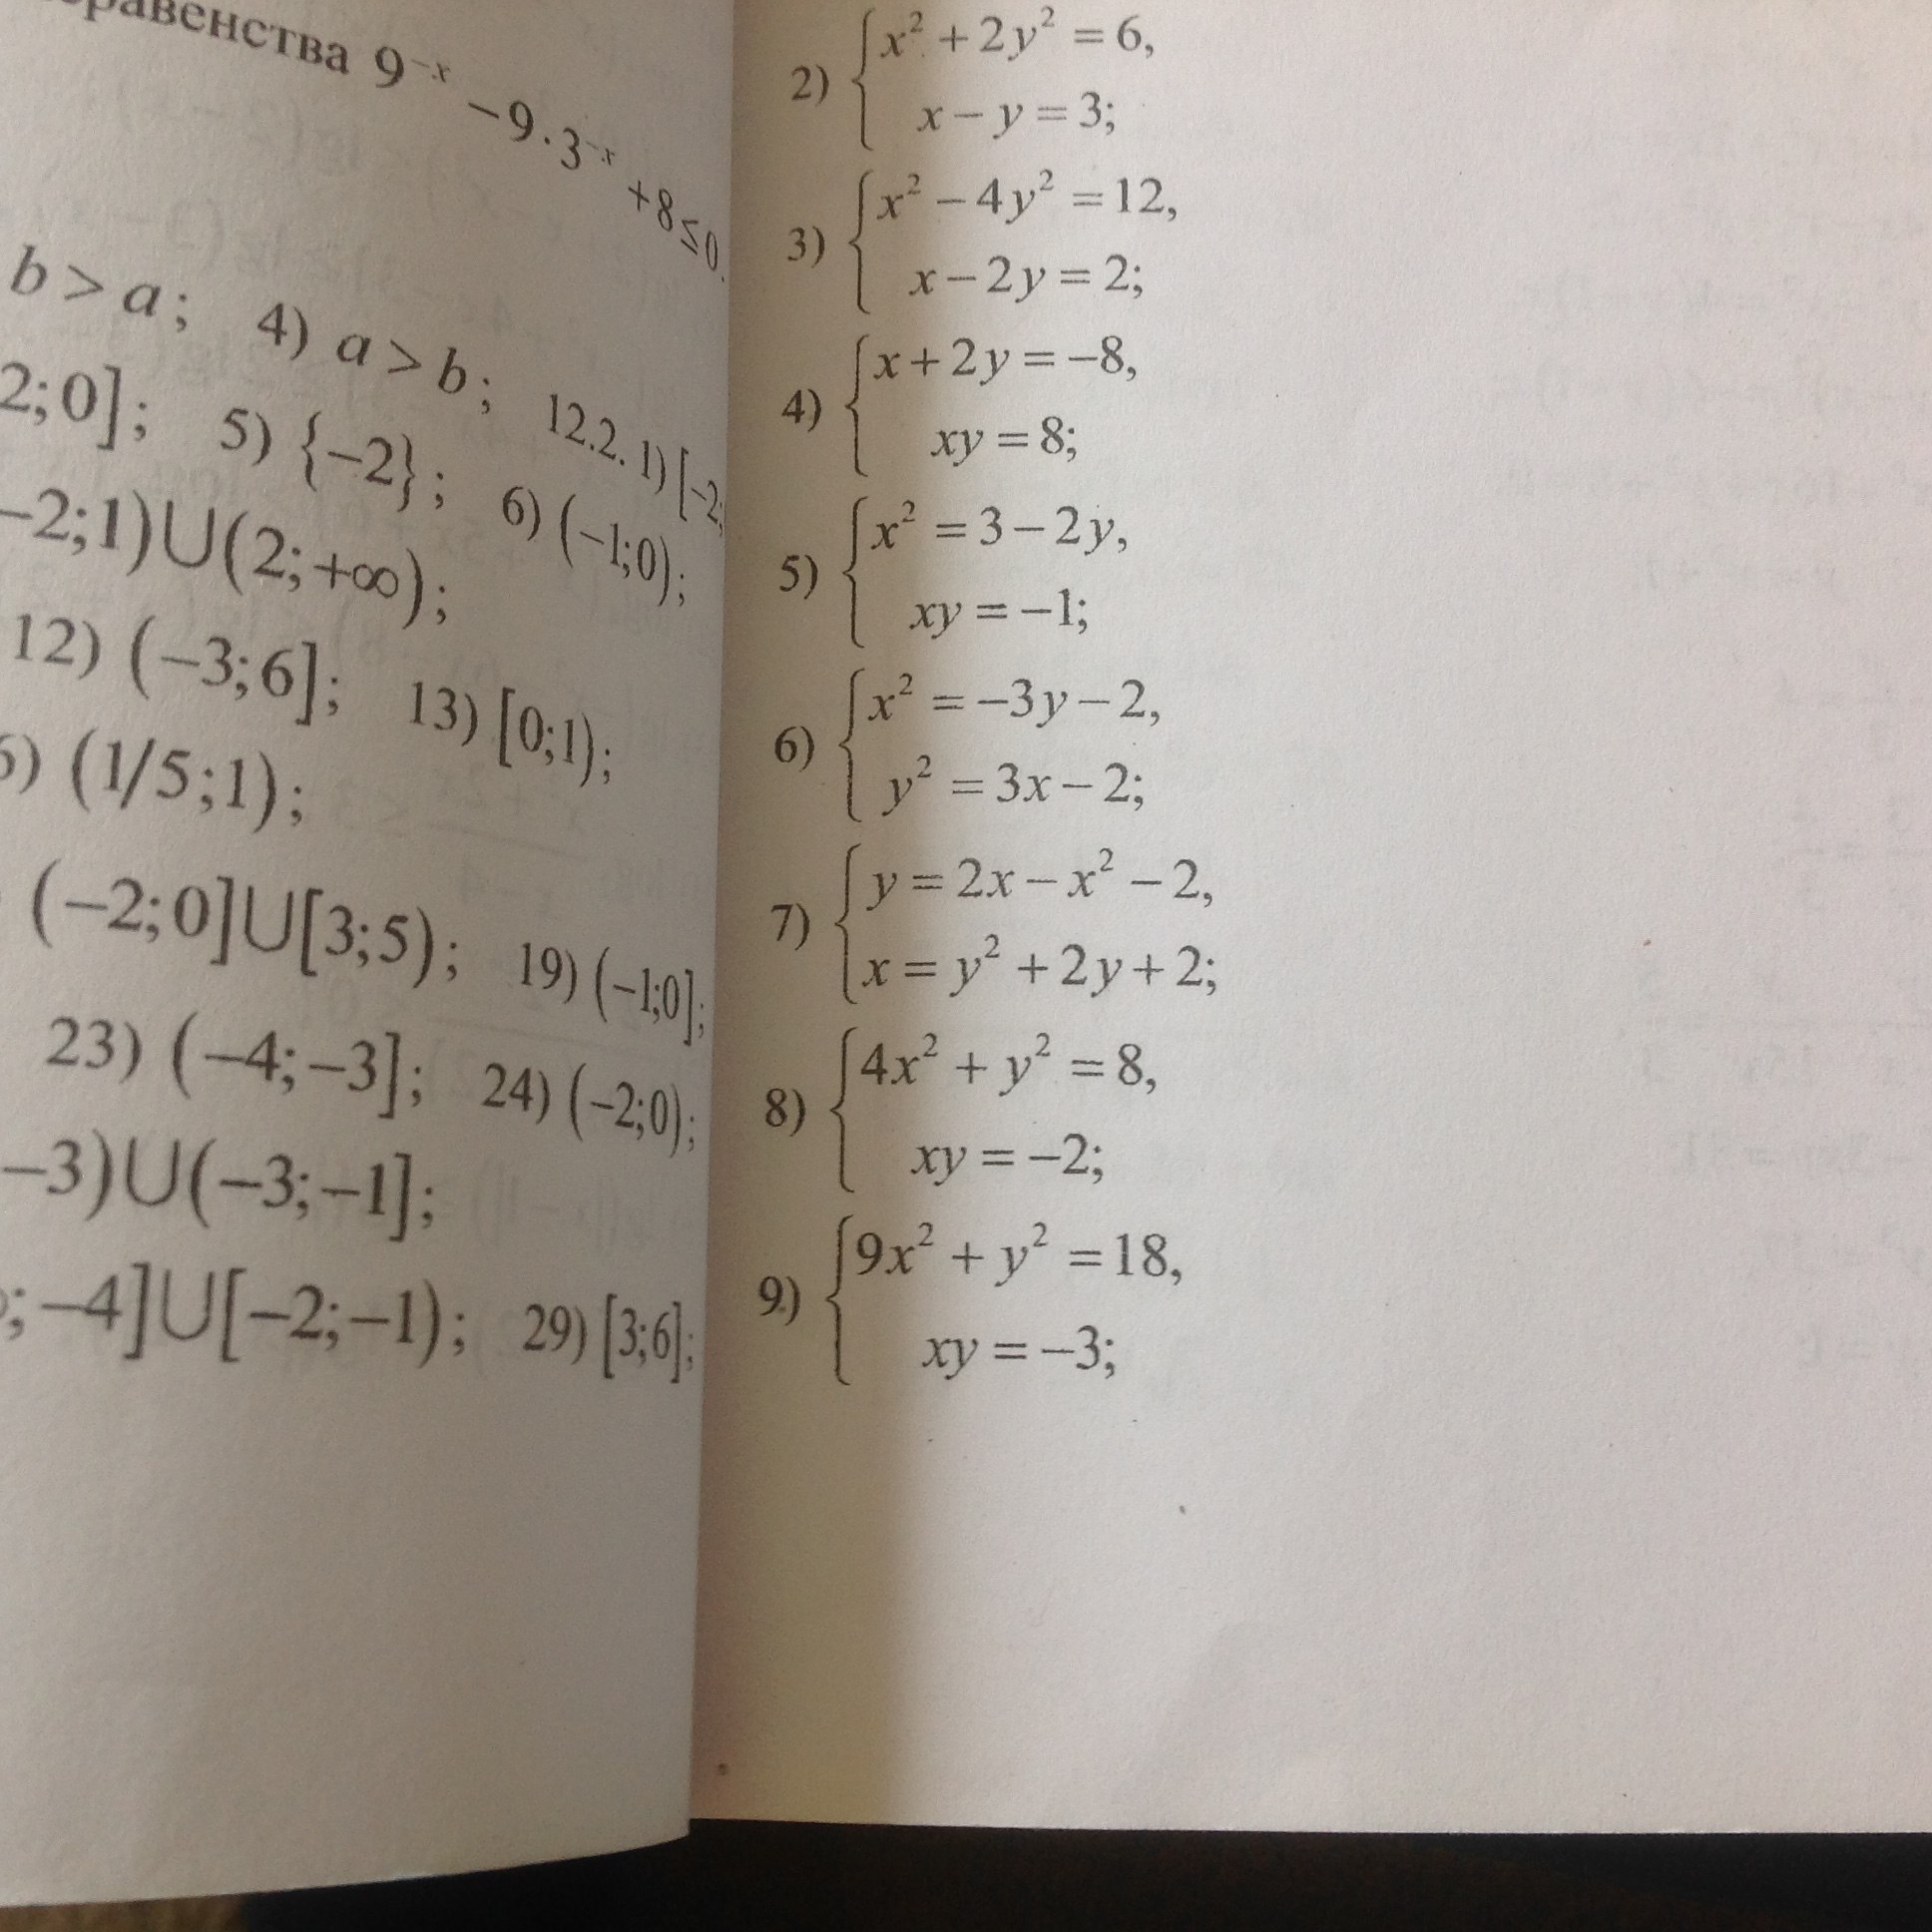 неравенства 9⁻ˣ − 9·3⁻ˣ + 8 ≤ 0.
b > a; 4) a > b; 12.2. 1) [−2;
2;0]; 5) {−2}; 6) (−1;0);
−2;1)∪(2;+∞);
12) (−3;6]; 13) [0;1);
(1/5;1);
(−2;0]∪[3;5); 19) (−1;0];
23) (−4;−3]; 24) (−2;0);
−3)∪(−3;−1];
;−4]∪[−2;−1); 29) [3;6];
2) { x² + 2y² = 6,
x − y = 3;
3) { x² − 4y² = 12,
x − 2y = 2;
4) { x + 2y = −8,
xy = 8;
5) { x² = 3 − 2y,
xy = −1;
6) { x² = −3y − 2,
y² = 3x − 2;
7) { y = 2x − x² − 2,
x = y² + 2y + 2;
8) { 4x² + y² = 8,
xy = −2;
9) { 9x² + y² = 18,
xy = −3;